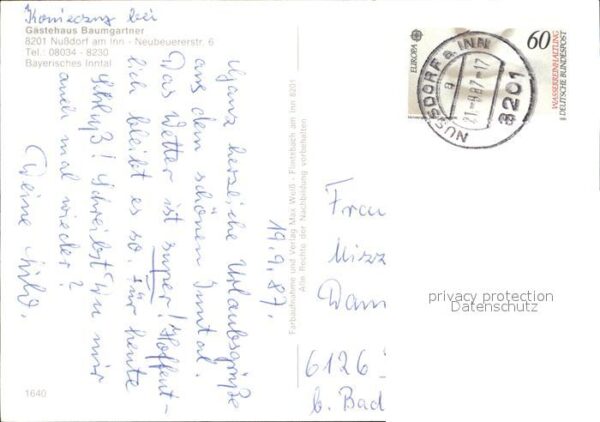 Konieczny bei
Gästehaus Baumgartner
8201 Nußdorf am Inn - Neubeuererstr. 6
Tel.: 08034 - 8230
Bayerisches Inntal
19.9.87.
Ganz herzliche Urlaubsgrüße
aus dem schönen Inntal.
Das Wetter ist super! Hoffent-
lich bleibt es so. Für heute
Schluß! Schreibst Du mir
auch mal wieder?
Deine
1640
Farbaufnahme und Verlag Max Weiß - Flintsbach am Inn 8201
Alle Rechte der Nachbildung vorbehalten
EUROPA
60
WASSERREINHALTUNG
DEUTSCHE BUNDESPOST
NUSSDORF A. INN
a
21.-9.87-17
8201
Frau
Mizz
Dam
6126
b. Bad
privacy protection
Datenschutz